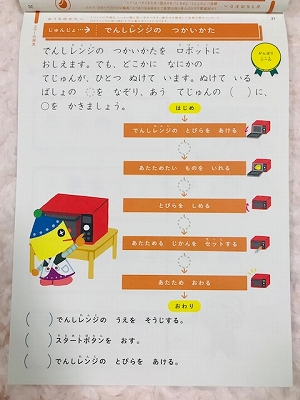 31
じゅんじょ…→ でんしレンジの つかいかた
でんしレンジの つかいかたを ロボットに
おしえます。でも、どこかに なにかの
てじゅんが、ひとつ ぬけて います。ぬけて いる
ばしょの ◌を なぞり、あう てじゅんの ( )に、
○を かきましょう。
はじめ
でんしレンジの とびらを あける
あたためたい ものを いれる
とびらを しめる
あたためる じかんを セットする
あたため おわる
おわり
( ) でんしレンジの うえを そうじする。
( ) スタートボタンを おす。
( ) でんしレンジの とびらを あける。